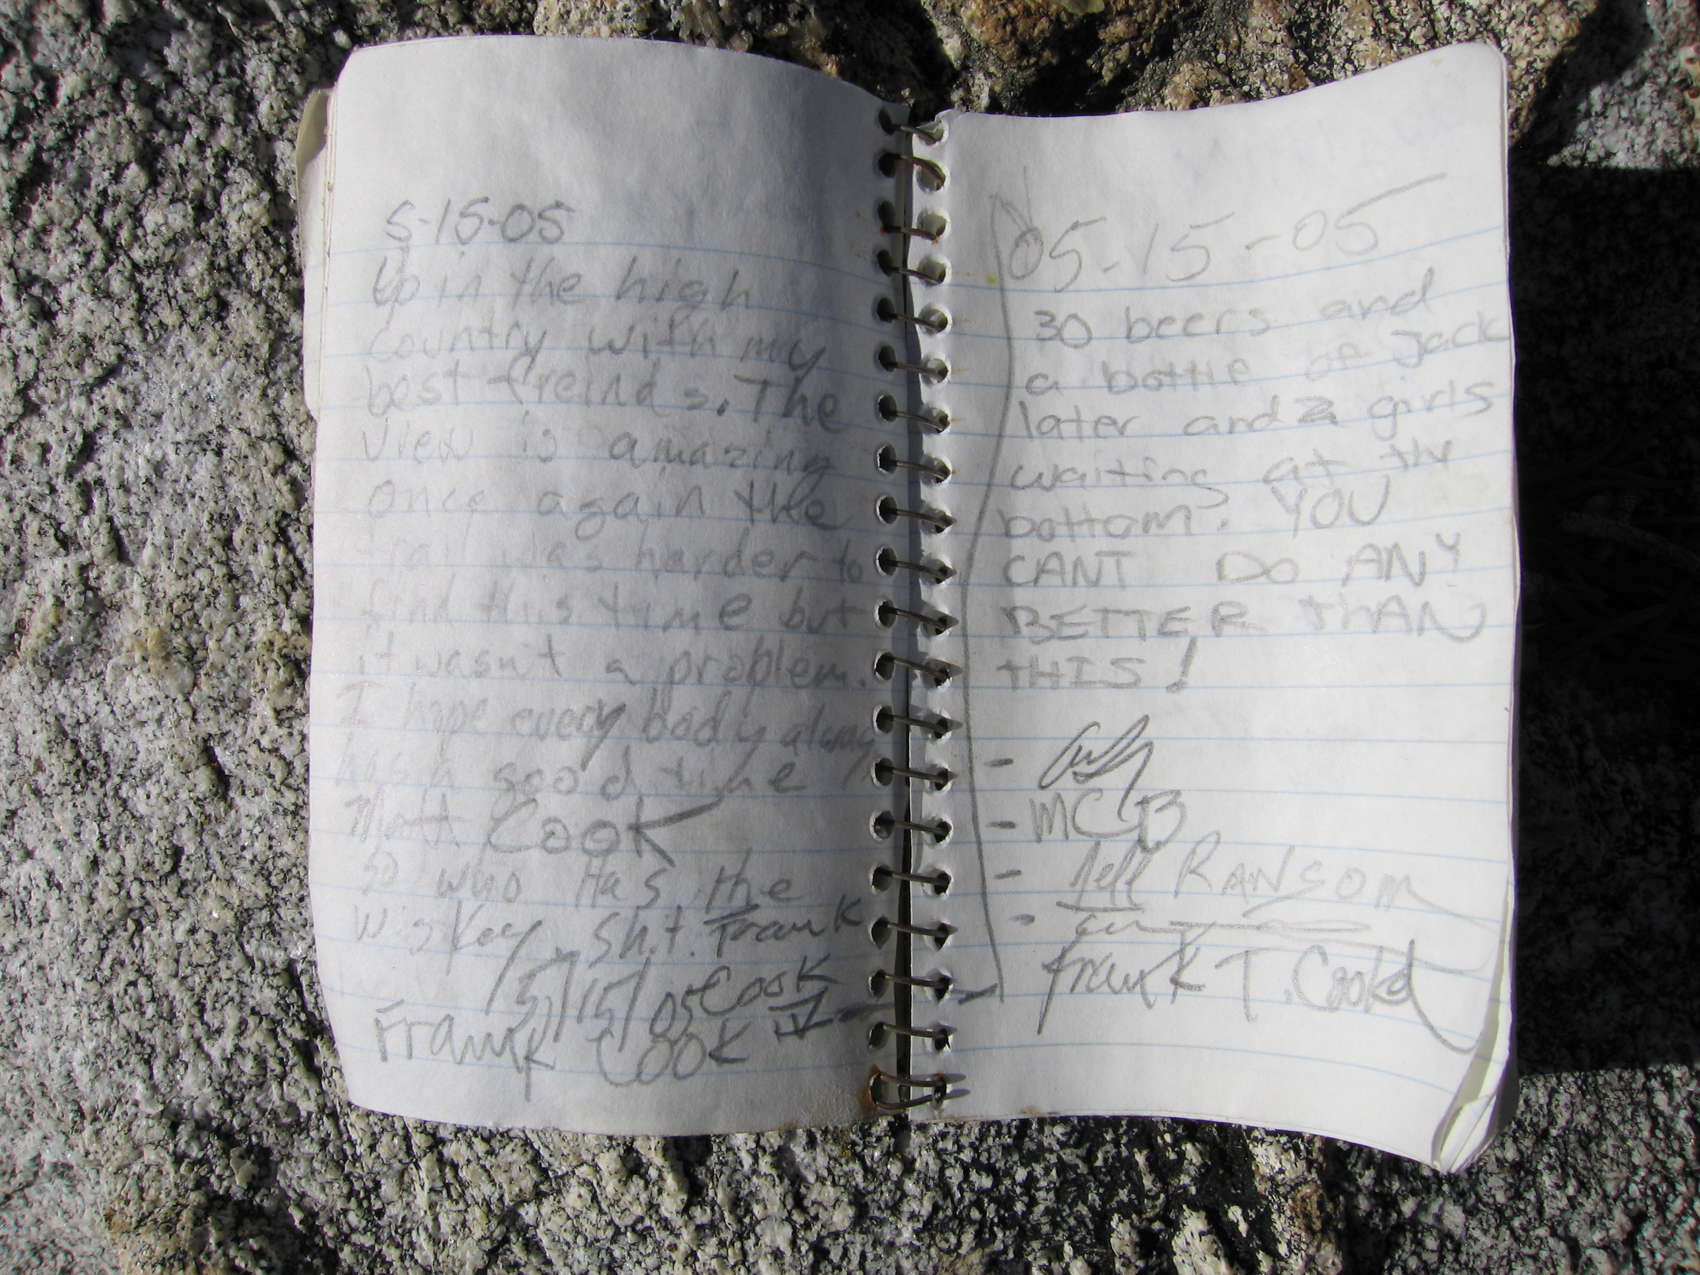 5-15-05
Up in the high
Country with my
best freinds. The
view is amazing
once again the
trail was harder to
find this time but
it wasn't a problem.
I hope every body along
has a good time
Matt Cook
So who Has the
Wiskey, Sh.t. Frank
Cook
5/15/05
Frank Cook IV
05-15-05
30 beers and
a bottle of Jack
later and 2 girls
waiting at the
bottom. YOU
CANT DO ANY
BETTER THAN
THIS!
-
- MCB
- Jeff RANSOM
-
Frank T. Cook